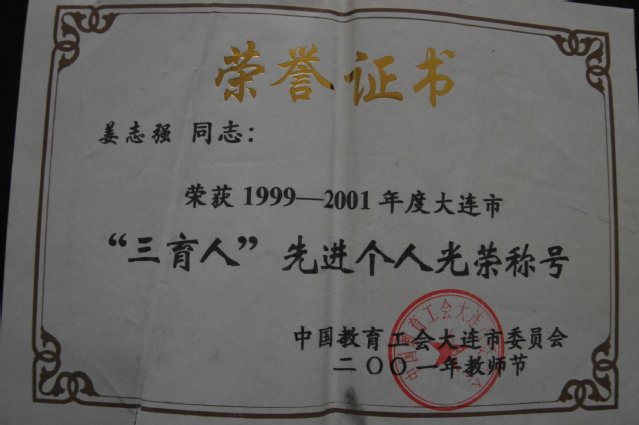 荣誉证书
姜志强 同志：
荣获1999—2001年度大连市
“三育人”先进个人光荣称号
中国教育工会大连市委员会
二〇〇一年教师节
中国教育工会大连市委员会